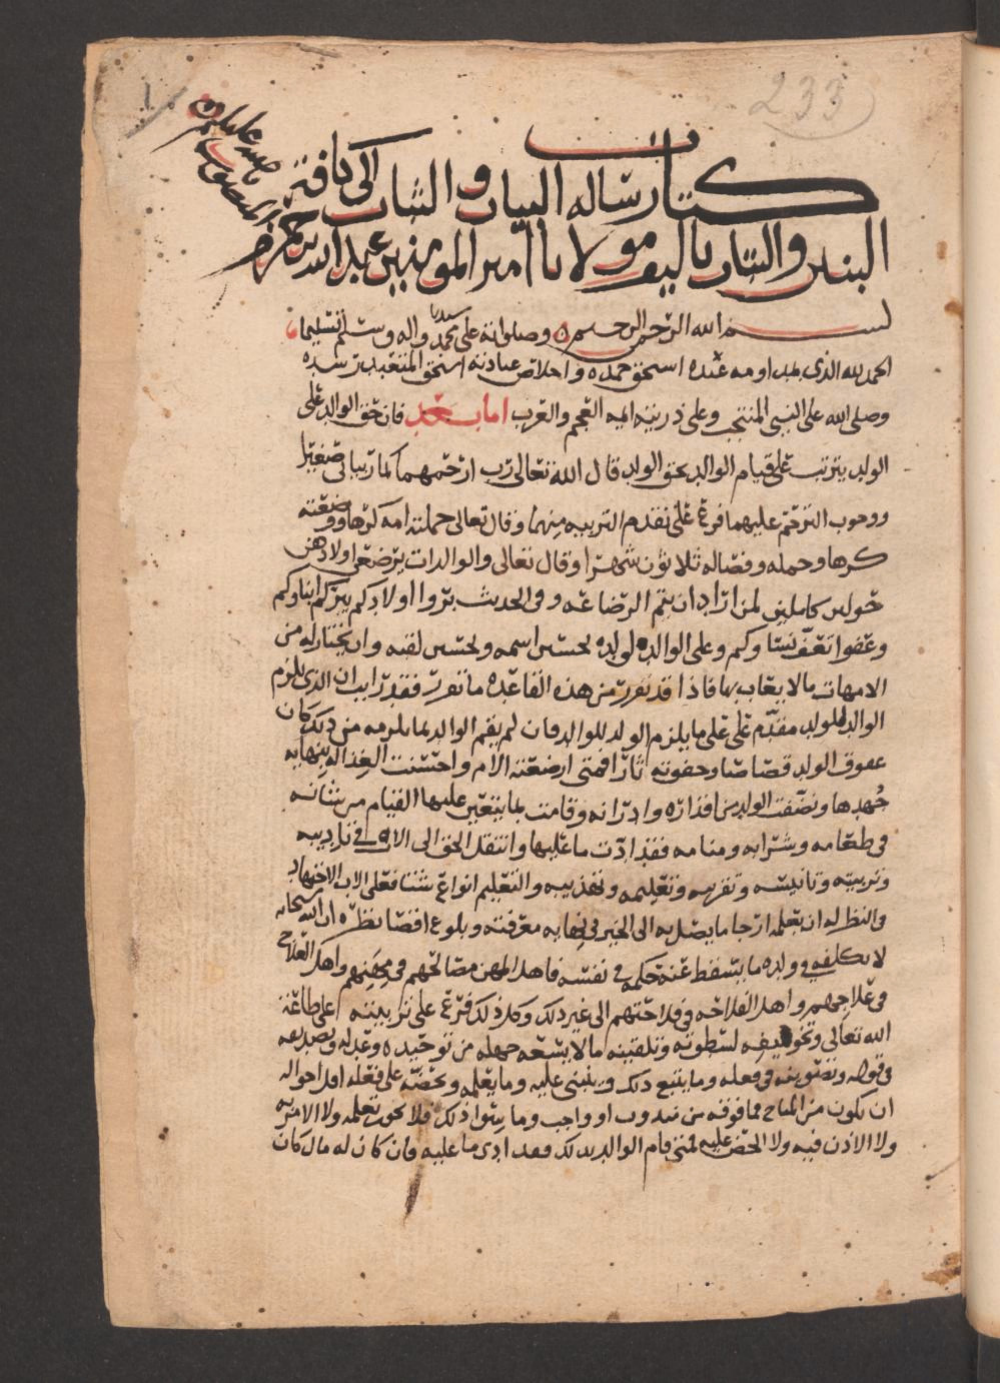 233
1
كتاب رساله البيان والثبات الى كافة
البنين والبنات تاليف مولانا امير المومنين عبد الله بن حمزه
المنصور بالله
بسم الله الرحمن الرحيم وصلواته على سيدنا محمد واله وسلم تسليما
الحمد لله الذي استحق حمده واخلاص عبادته استحق المتعبد
وصلى الله على النبي المنتجب وعلى ذريته ايمه العجم والعرب اما بعد فان حق الوالد على
الولد يترتب على قيام الوالد بحق الولد قال الله تعالى رب ارحمهما كما ربياني صغيرا
ووجوب الترحم عليهما فرع على تقدم التربيه منهما وقال تعالى حملته امه كرها ووضعته
كرها وحمله وفصاله ثلاثون شهرا وقال تعالى والوالدات يرضعن اولادهن
حولين كاملين لمن اراد ان يتم الرضاعه وفي الحديث بروا اولادكم يبركم ابناوكم
وعفوا تعف نساوكم وعلى الوالد لولده يحسن اسمه ويحسن لقبه وان يختار له من
الامهات مالا يعاب بها فاذا قد تقرر من هذه القاعده ما تقرر فقد رايت ان الذي يلزم
الوالد للولد مقدم على على ما يلزم الولد للوالد فان لم يقم الوالد بما يلزمه من ذلك كان
عقوق الولد قصاصا وجفوته ثارا فمتى ارضعته الام واحسنت الغذا له بنهايه
جهدها ونضفت الولد من اقذاره وادرانه وقامت بما يتعين عليها القيام من شانه
في طعامه وشرابه ومنامه فقد ادت ما عليها وانتقل الحق الى الاب في تاديبه
وتربيته وتانيسه وتعليمه وتهذيبه والتعليم انواع شتا فعلى الاب الاجتهاد
في النظر له ان يعلمه ارجا ما يصل به الى الخير في نهايه معرفته وبلوغ اقصا نظره ان الله سبحانه
لا يكلفه في ولده ما يسقط عنه حكمه في نفسه فاهل المهن مصالحهم في مهنهم واهل
في واهل الفلاحه في فلاحتهم الى غير ذلك وكل ذلك فرع على تربيته على طاعة
الله تعالى وتخويفه لسطوته وتلقينه مالا يسعه جهله من توحيده وعدله
في قوله وتصويبه في فعله وما يتبع ذلك وينبني عليه وما يعلمه ويحضه على فعله اقل احواله
ان يكون من المباح فما فوقه من مندوب او واجب وما سوا ذلك فلا يجوز تعلمه ولا الامر به
ولا الاذن فيه ولا الحض عليه فمتى قام الوالد بذلك فقد ادى ما عليه فان كان له مال كان